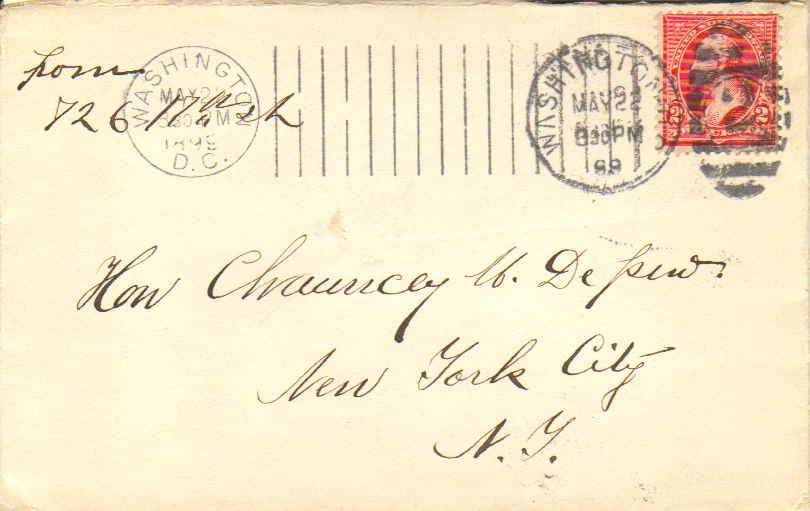 from
726 17th st
WASHINGTON
MAY 22
1899
D.C.
WASHINGTON
MAY 22
8 30 PM
99
2 2
Hon Chauncey M. Depew.
New York City
N. Y.